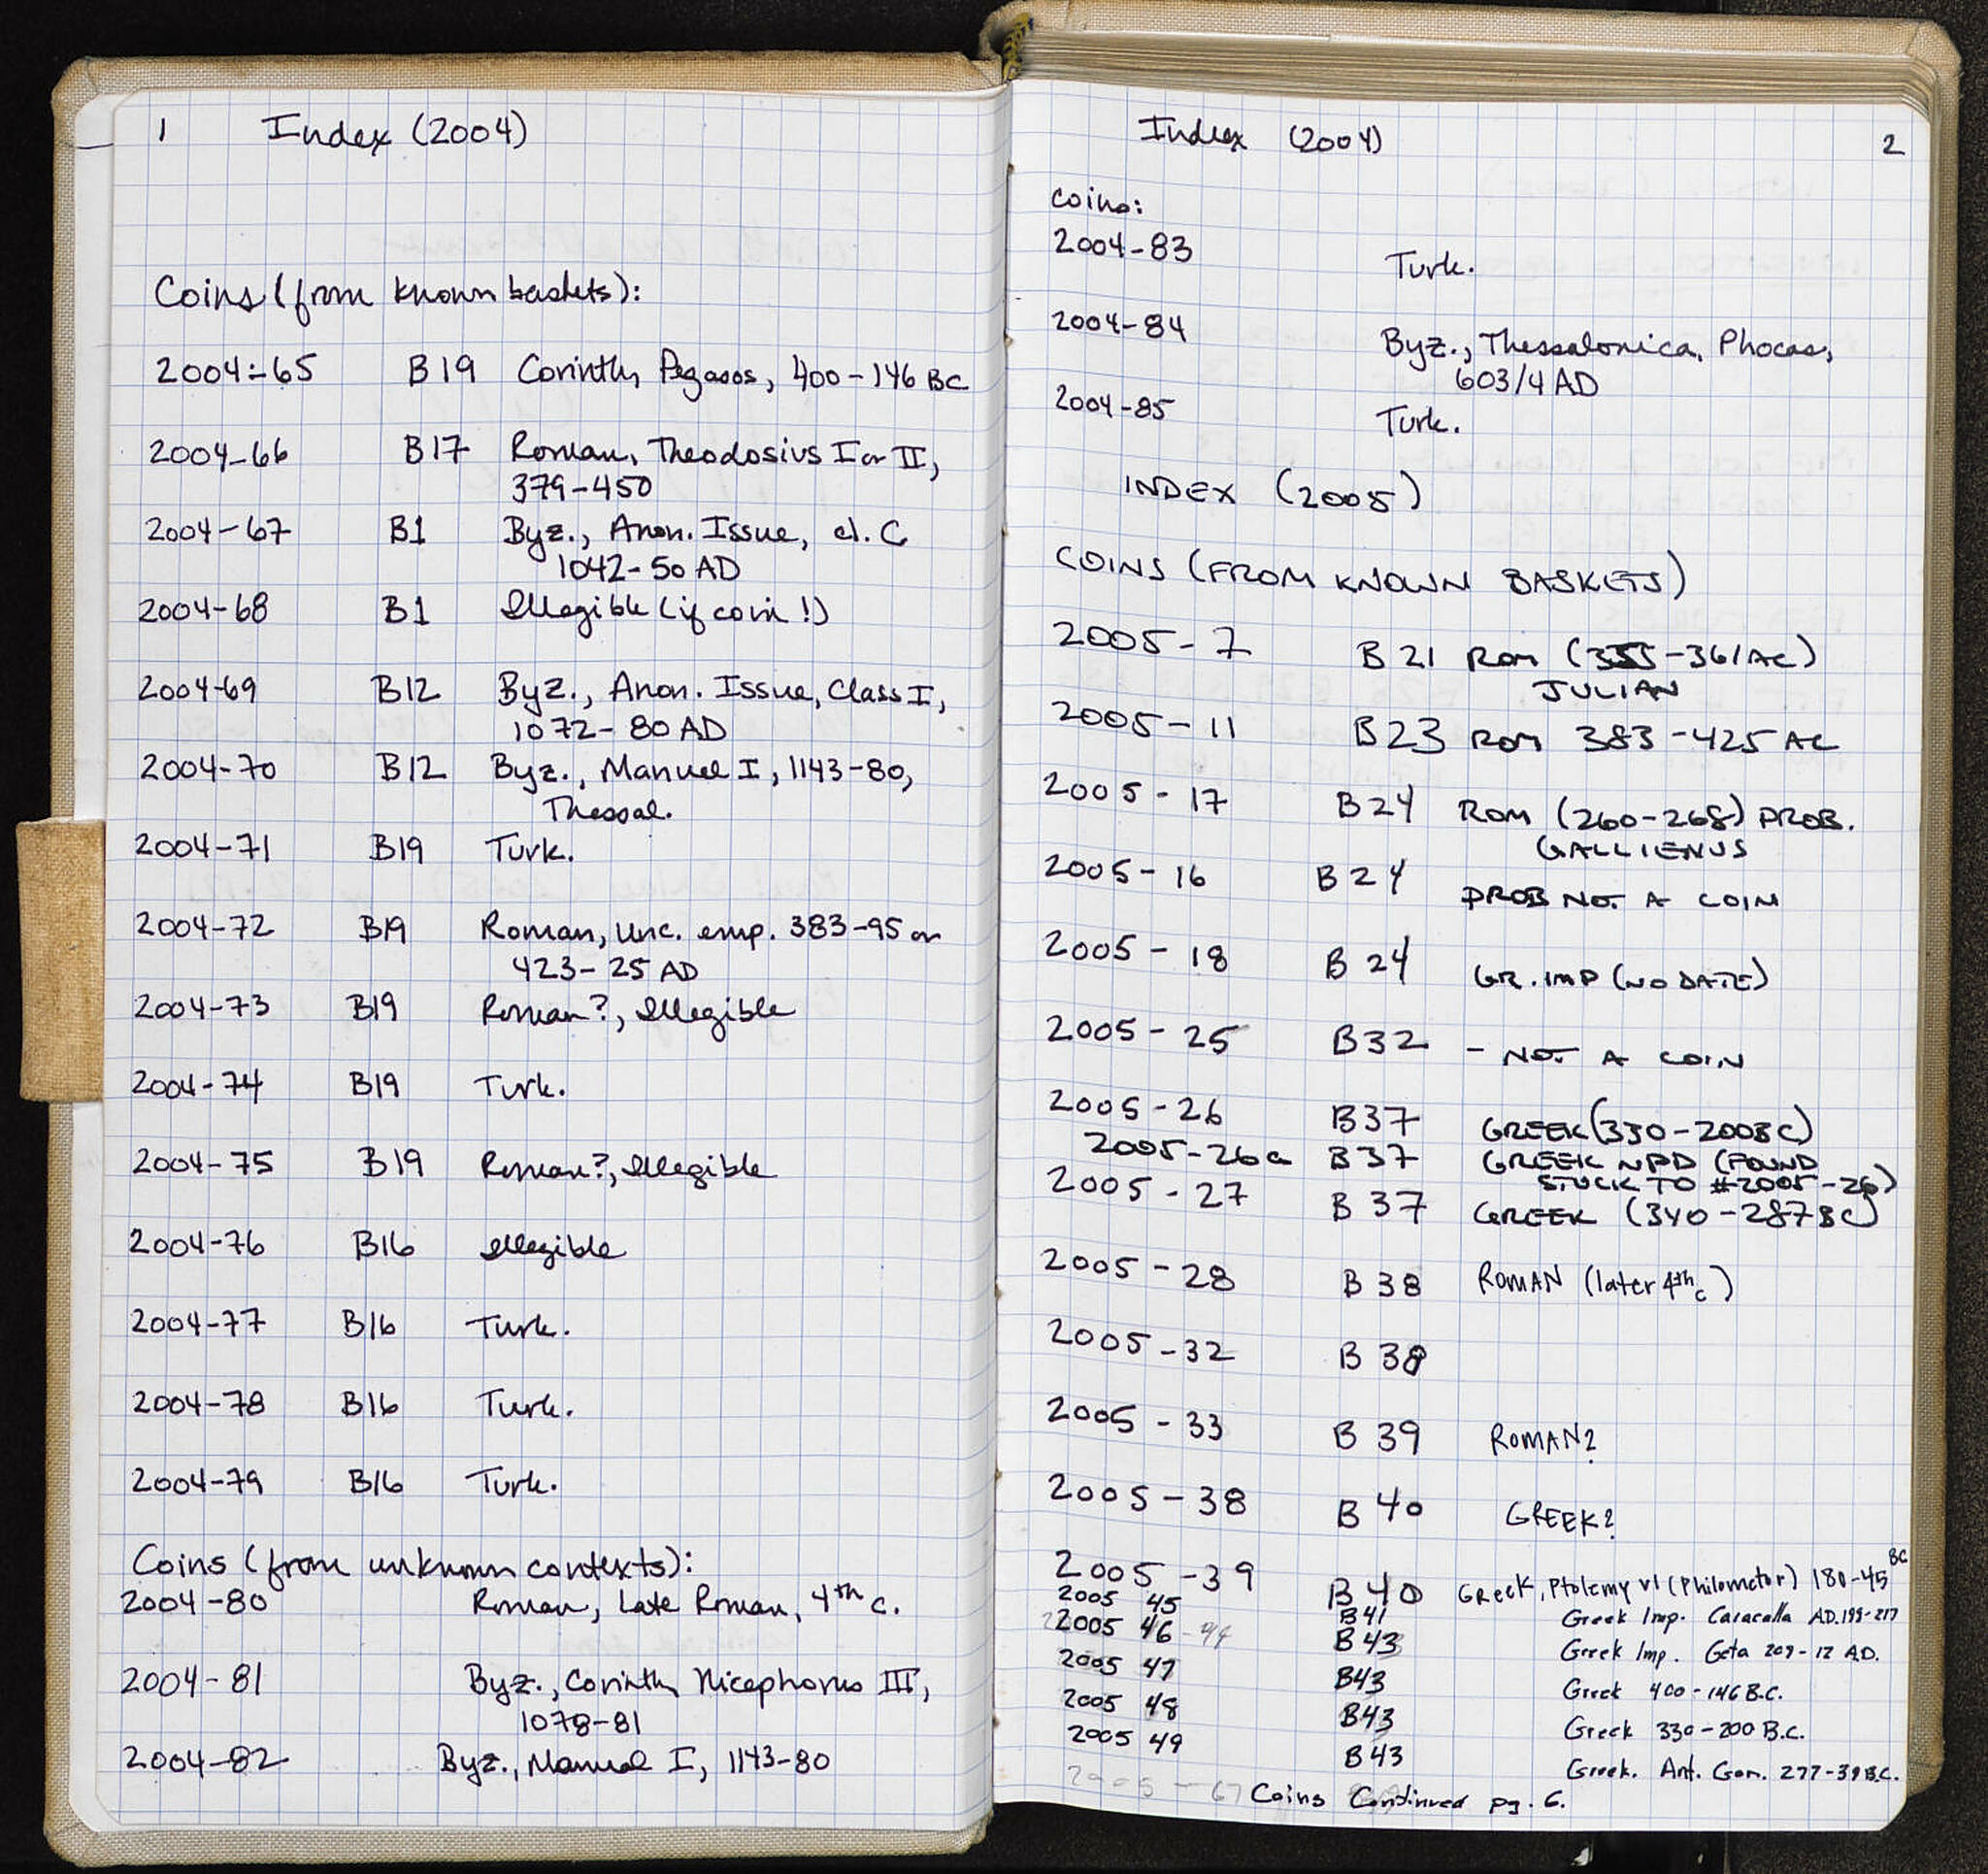 1 Index (2004)
Coins (from known baskets):
2004-65 B19 Corinth, Pegasos, 400-146 BC
2004-66 B17 Roman, Theodosius I or II,
379-450
2004-67 B1 Byz., Anon. Issue, cl. C
1042-50 AD
2004-68 B1 Illegible (if coin!)
2004-69 B12 Byz., Anon. Issue, Class I,
1072-80 AD
2004-70 B12 Byz., Manuel I, 1143-80,
Thessal.
2004-71 B19 Turk.
2004-72 B19 Roman, Unc. emp. 383-95 or
423-25 AD
2004-73 B19 Roman?, Illegible
2004-74 B19 Turk.
2004-75 B19 Roman?, Illegible
2004-76 B16 Illegible
2004-77 B16 Turk.
2004-78 B16 Turk.
2004-79 B16 Turk.
Coins (from unknown contexts):
2004-80 Roman, Late Roman, 4th c.
2004-81 Byz., Corinth, Nicephorus III,
1078-81
2004-82 Byz., Manuel I, 1143-80
Index (2004) 2
coins:
2004-83 Turk.
2004-84 Byz., Thessalonica, Phocas,
603/4 AD
2004-85 Turk.
INDEX (2005)
COINS (FROM KNOWN BASKETS)
2005-7 B21 ROM (355-361 AC)
JULIAN
2005-11 B23 ROM 383-425 AC
2005-17 B24 ROM (260-268) PROB.
GALLIENUS
2005-16 B24 PROB NOT A COIN
2005-18 B24 GR. IMP (NO DATE)
2005-25 B32 - NOT A COIN
2005-26 B37 GREEK (330-200BC)
2005-26a B37 GREEK NPD (FOUND
STUCK TO #2005-26)
2005-27 B37 GREEK (340-287BC)
2005-28 B38 ROMAN (later 4th c)
2005-32 B38
2005-33 B39 ROMAN?
2005-38 B40 GREEK?
2005-39 B40 GREEK, Ptolemy VI (Philometor) 180-45 BC
2005 45 B41 Greek Imp. Caracalla AD.198-217
2005 46 B43 Greek Imp. Geta 209-12 AD.
2005 47 B43 Greek 400-146 B.C.
2005 48 B43 Greek 330-200 B.C.
2005 49 B43 Greek. Ant. Gon. 277-39 B.C.
Coins Continued pg. 6.